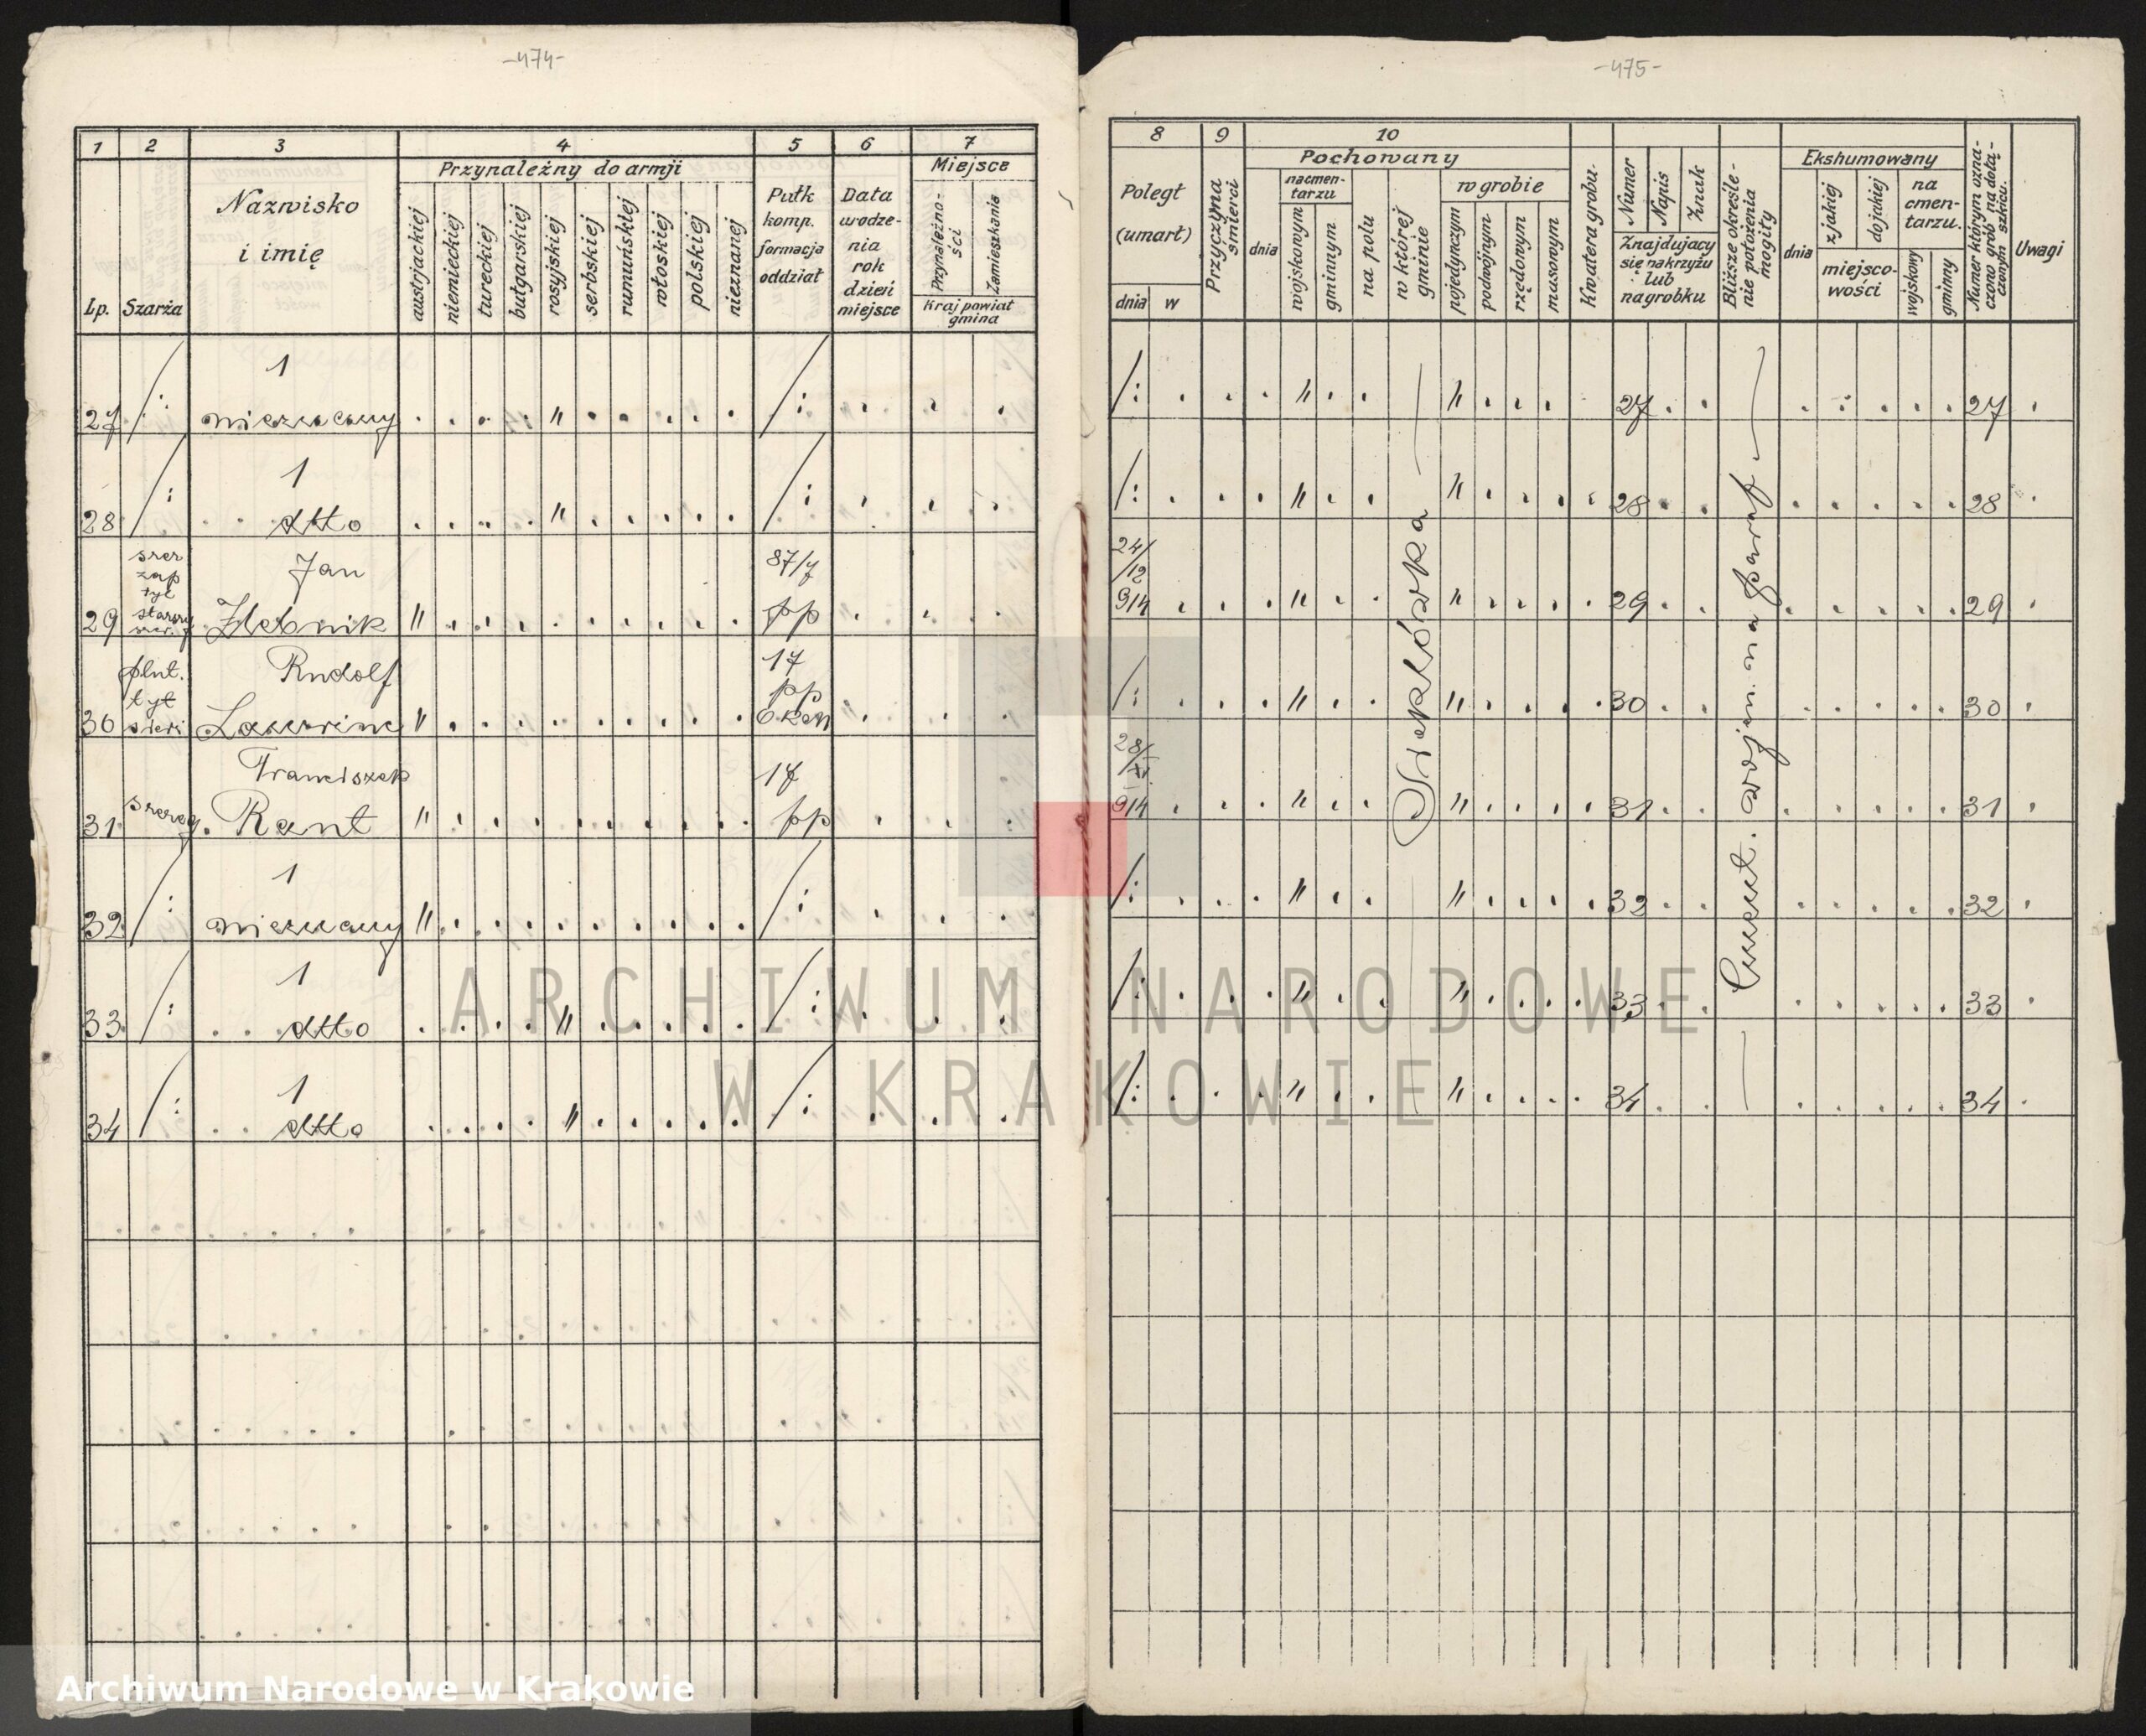 -474-
1 2 3 4 5 6 7
Przynależny do armji
Miejsce
Lp.
Szarża
Nazwisko
i imię
austrjackiej
niemieckiej
tureckiej
bułgarskiej
rosyjskiej
serbskiej
rumuńskiej
włoskiej
polskiej
nieznanej
Pułk
komp.
formacja
oddział
Data
urodze-
nia
rok
dzień
miejsce
Przynależno-
ści
Zamieszkania
Kraj powiat
gmina
1
27 /: nieznany . . . . " . . . . . /: . . .
1
28 /: . . dtto . . . . " . . . . . /: . . .
szer
zap
tyt
starszy
Jan
87/7
29 Zlebnik " . . . . . . . . . pp . . .
plut.
tyt
Rudolf
17
pp
30 Lawrinc " . . . . . . . . . . . .
Franciszek
17
31 szereg. Rant " . . . . . . . . . pp . . .
1
32 /: nieznany " . . . . . . . . . /: . . .
1
33 /: . . dtto . . . . " . . . . . /: . . .
1
34 /: . . dtto . . . . " . . . . . /: . . .
-475-
8 9 10
Poległ
(umarł)
dnia w
Przyczyna
śmierci
Pochowany
dnia
na cmen-
tarzu
wojskowym
gminnym
na polu
w której
gminie
w grobie
pojedynczym
podwójnym
rzędowym
masowym
Kwatera grobu.
Numer
Napis
Znak
Znajdujący
się na krzyżu
lub
nagrobku
Bliższe określe-
nie położenia
mogiły
Ekshumowany
dnia
z jakiej
do jakiej
miejsco-
wości
na
cmen-
tarzu.
wojskowy
gminny
Numer którym ozna-
czono grób na dołą-
czonym szkicu.
Uwagi
/: . . . " . . " . . . 27 . . . . . . . . 27 .
/: . . . " . . " . . . . 28 . . . . . . . 28 .
24/
/12
914 . . . " . . " . . . . 29 . . . . . . . 29 .
/: . . . " . . " . . . . 30 . . . . . . . 30 .
28/
XI
914 . . . " . . " . . . . 31 . . . . . . . 31 .
/: . . . " . . " . . . . 32 . . . . . . . 32 .
/: . . . " . . " . . . . 33 . . . . . . . 33 .
/: . . . " . . " . . . . 34 . . . . . . . 34 .
Siekłówka
Cment. wojen. na
ARCHIWUM NARODOWE
W KRAKOWIE
Archiwum Narodowe w Krakowie